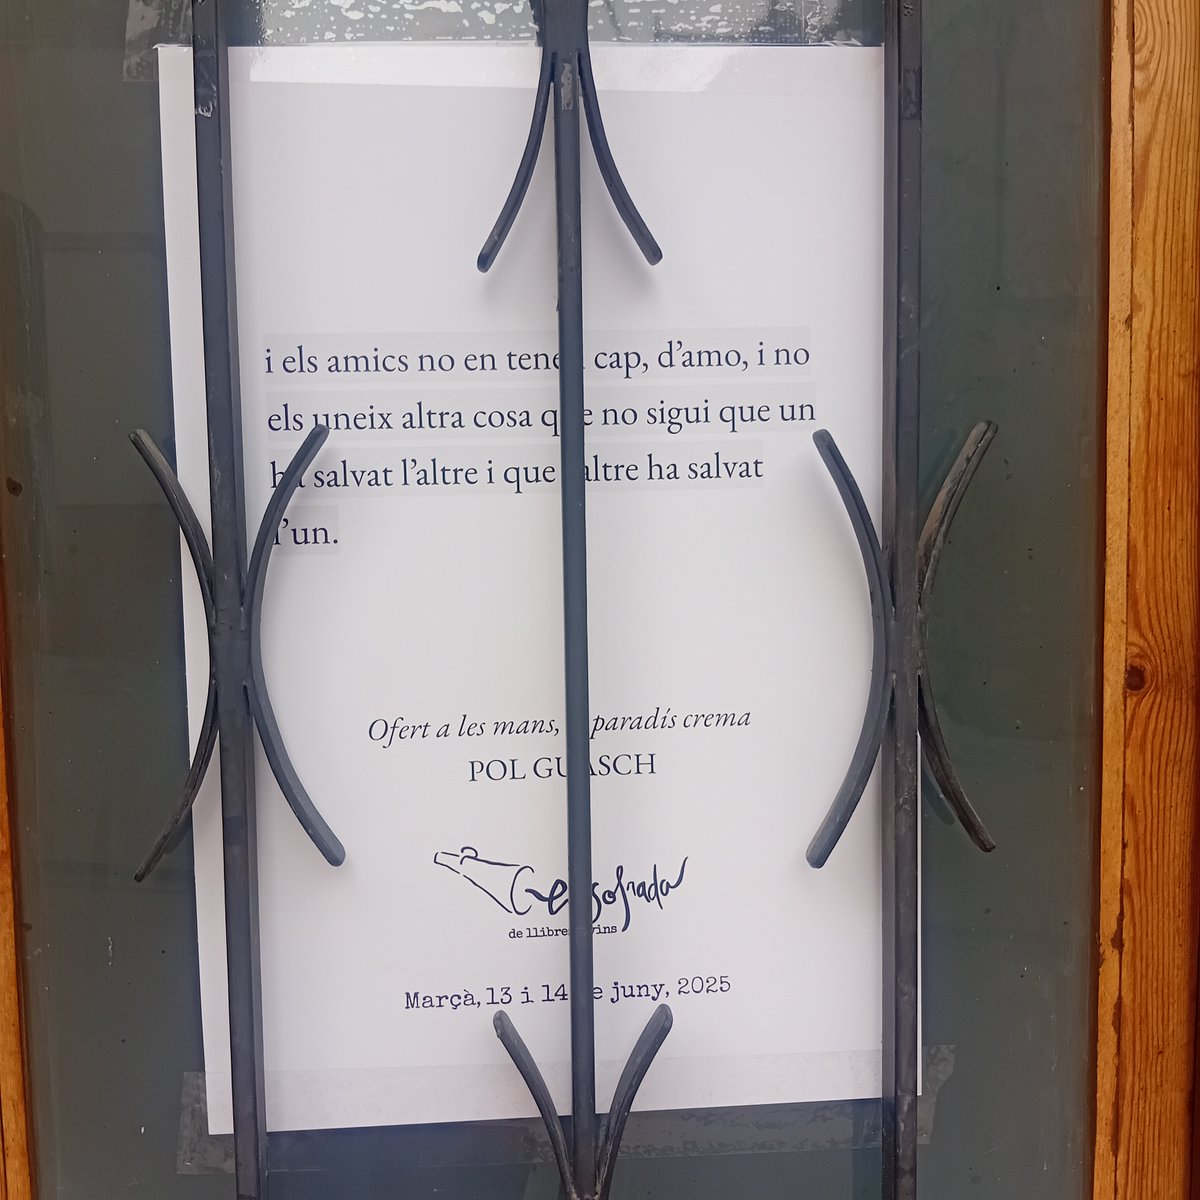 i els amics no en tenen cap, d'amo, i no
els uneix altra cosa que no sigui que un
ha salvat l'altre i que l'altre ha salvat
l'un.
Ofert a les mans, el paradís crema
POL GUASCH
ensofrada
de llibres i vins
Marçà, 13 i 14 de juny, 2025